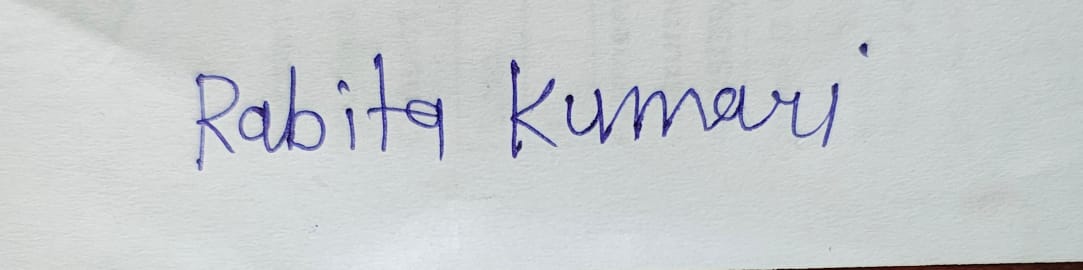 Rabita Kumari